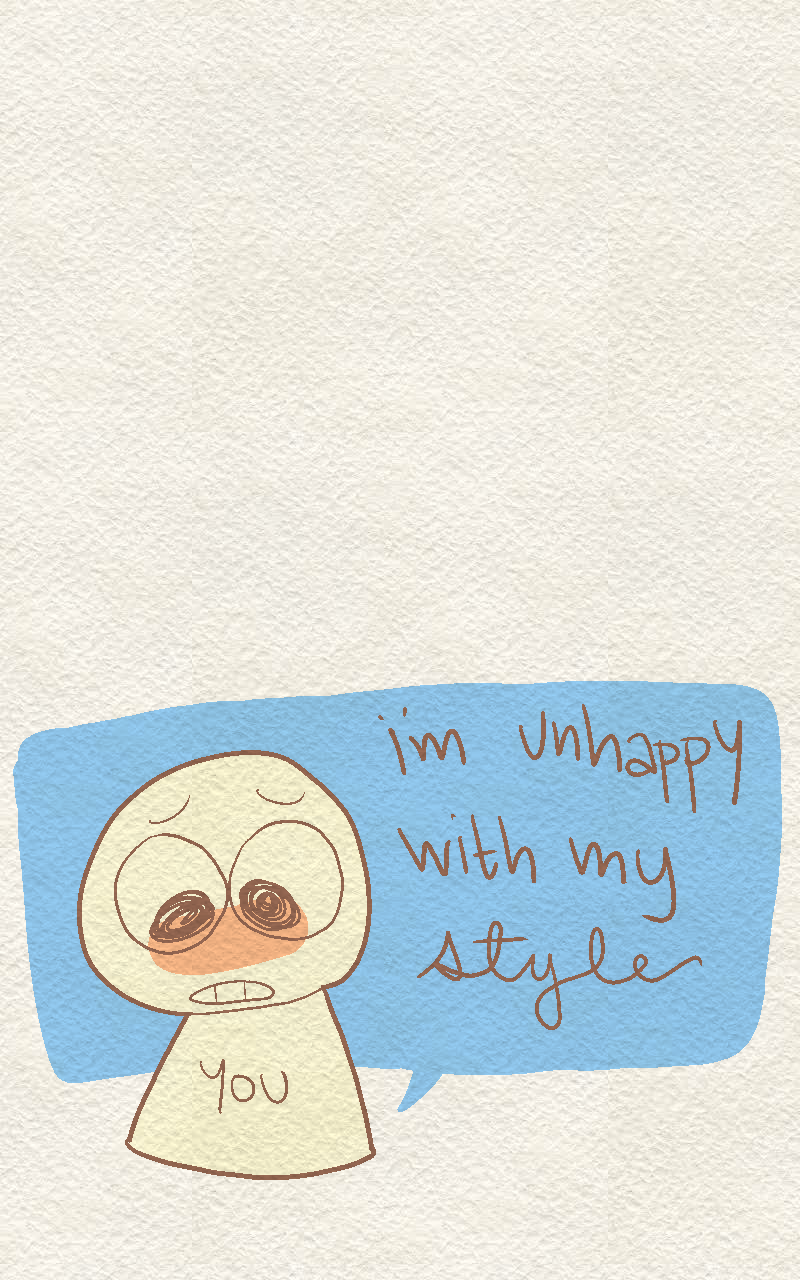 im unhappy
with my
style
YOU